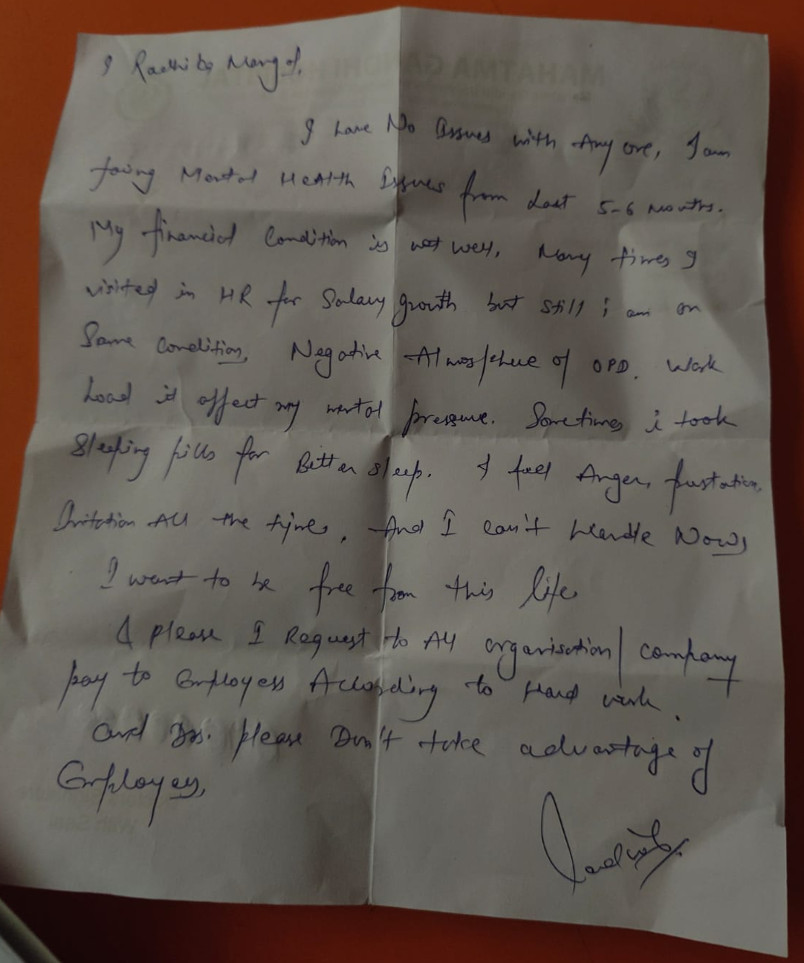 MAHATMA GANDHI HOSPITAL
I Radhika Mangal.
I have No Issues with Any one, I am
facing Mental HEAlth Issues from Last 5-6 Months.
My financial Condition is not well, Many times I
visited in HR for Salary growth but still i am on
Same Condition, Negative Atmosphere of OPD. Work
Load it affect my mental pressure. Sometimes i took
Sleeping pills for Better sleep. I feel Anger, frustation,
Irritation All the time, And I Can't Handle Now,
I want to be free from this life
& please I Request to All organisation/company
pay to Employess According to Hard work.
and Drs. please Don't take advantage of
Employes,
With Seal